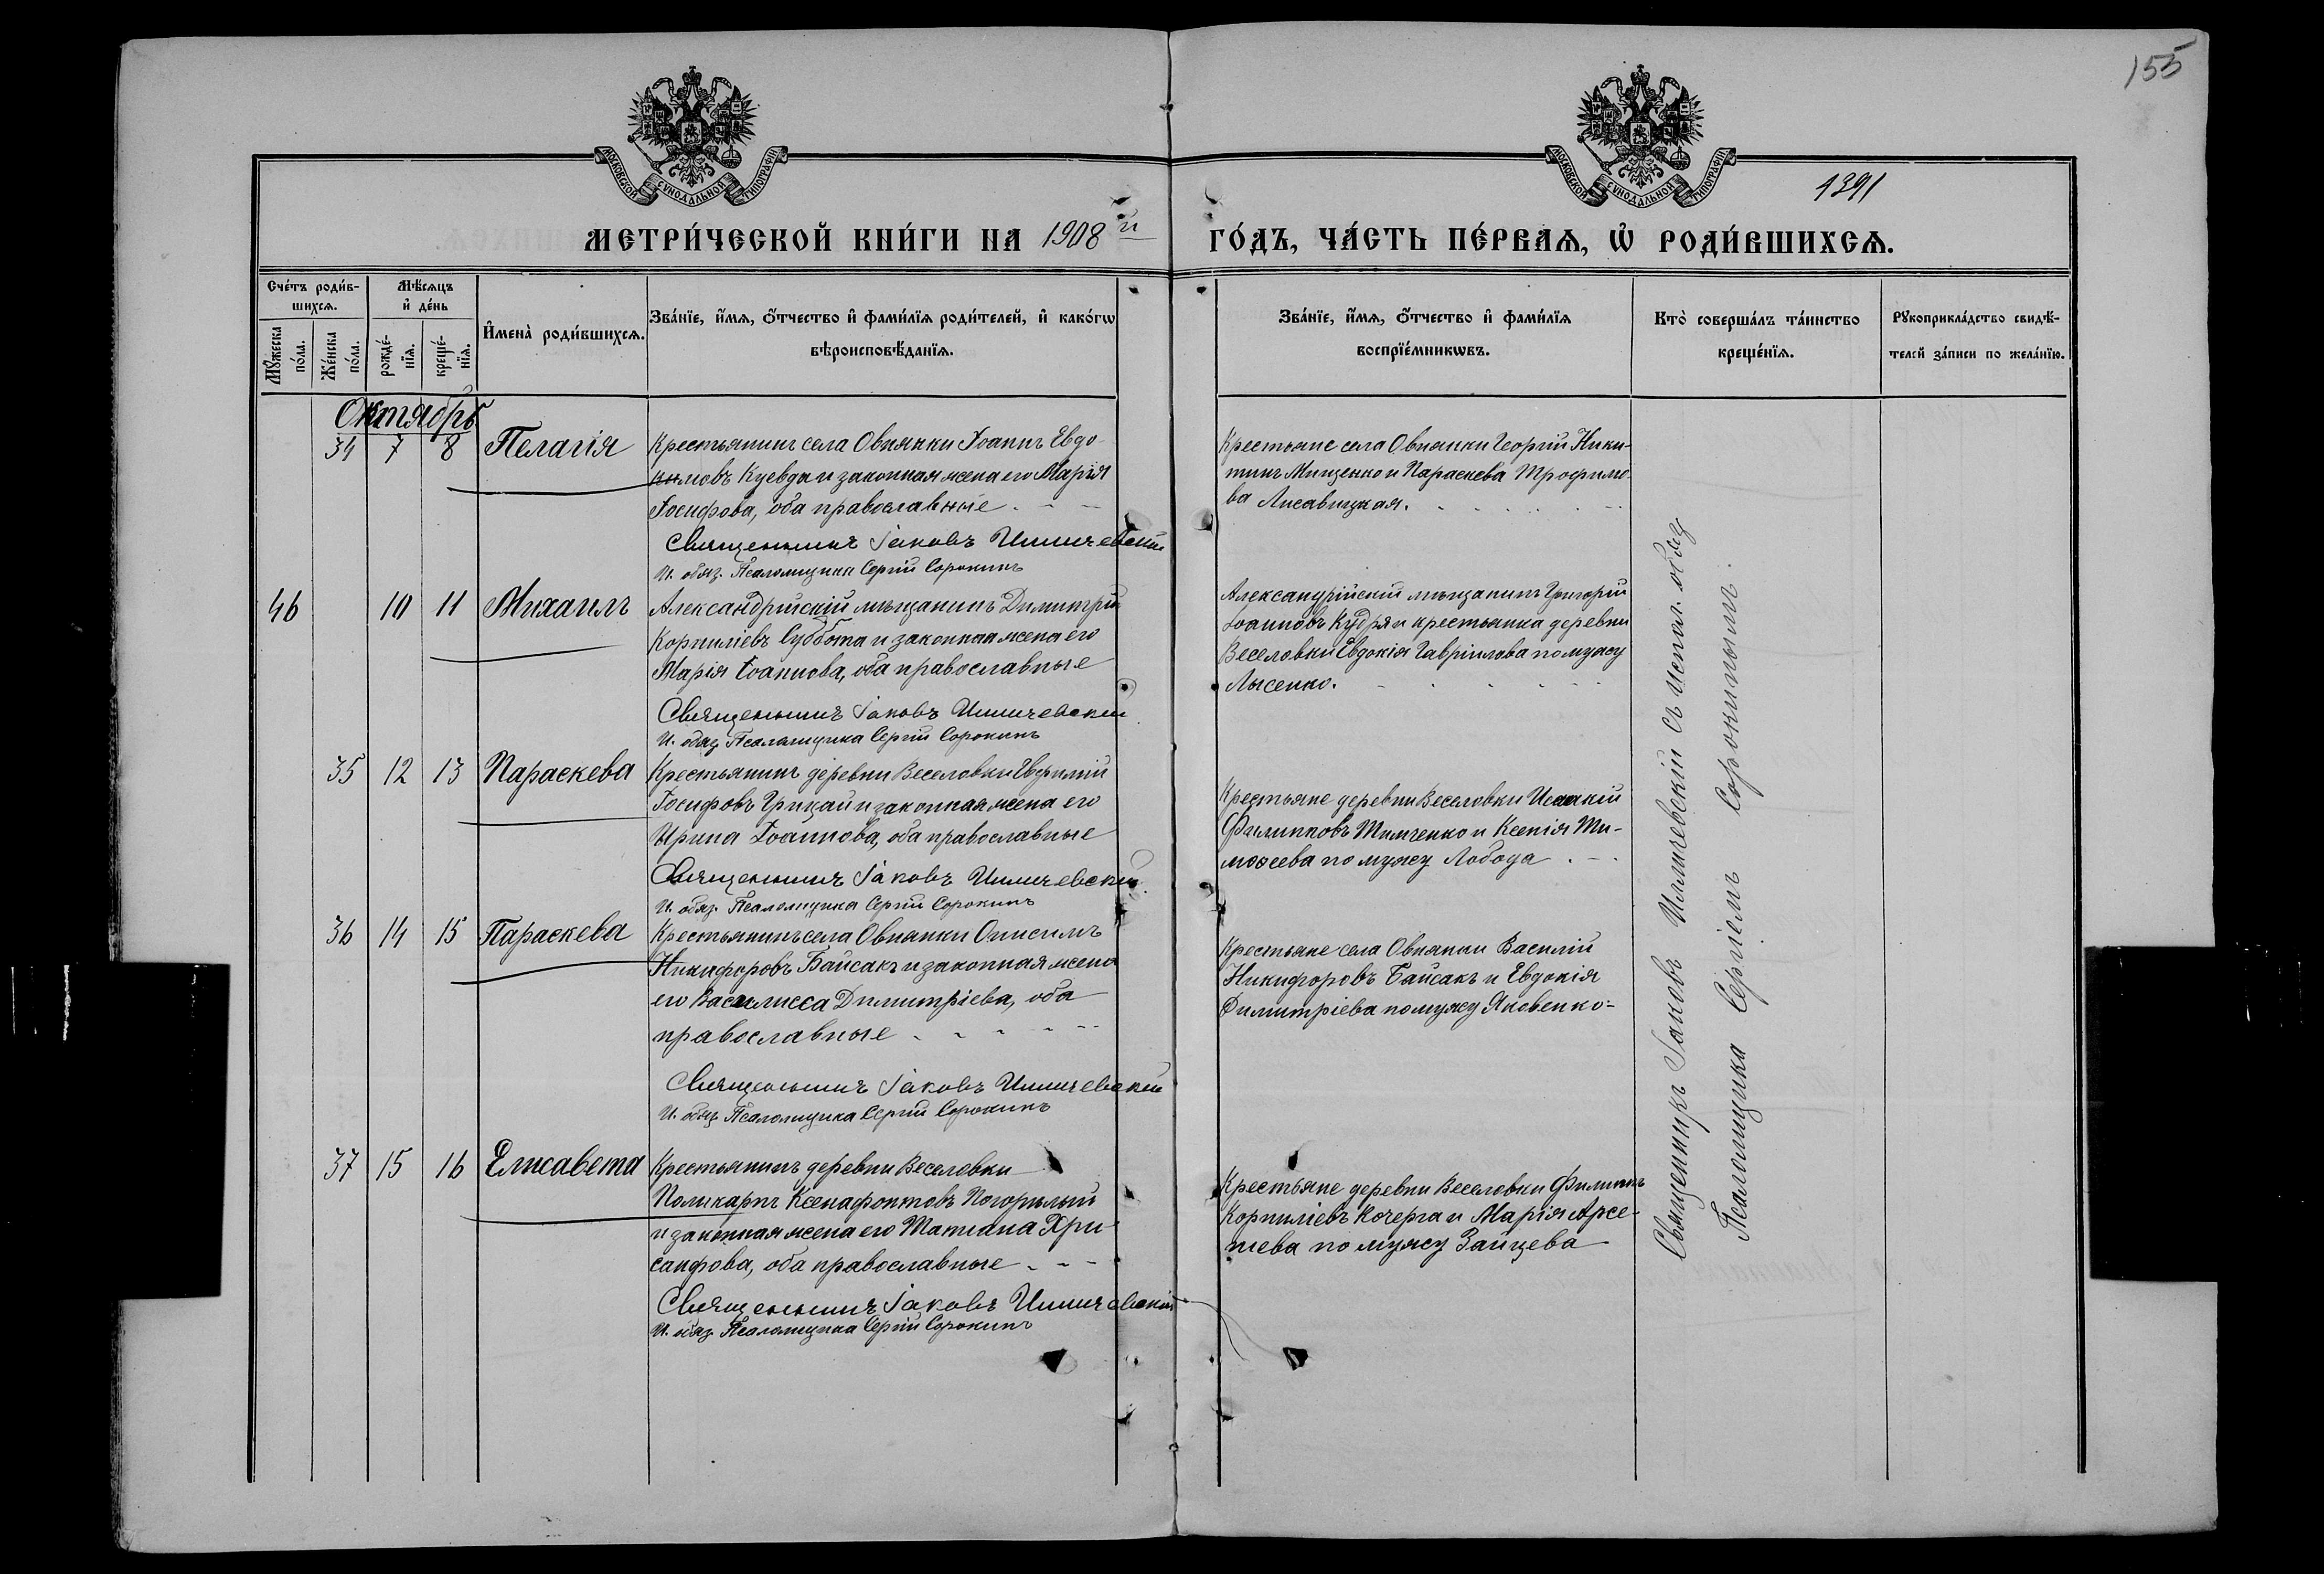 155
МОСКОВСКОЙ СѴНОДАЛЬНОЙ ТИПОГРАФІИ
МОСКОВСКОЙ СѴНОДАЛЬНОЙ ТИПОГРАФІИ
1391
МЕТРИ́ЧЕСКОЙ КНИ́ГИ НА 1908й ГО́ДЪ, ЧА́СТЬ ПЕ́РВАѦ, Ѡ҆ РОДИ́ВШИХСѦ.
Сче́тъ роди́в-
шихсѧ.
Мѣ́сѧцъ
и҆ де́нь
Мꙋ́жеска
по́ла.
Же́нска
по́ла.
рожде́-
нїѧ.
креще́-
нїѧ.
И҆мена̀ роди́вшихсѧ.
Зва́нїе, и҆́мѧ, ѻ҆́тчество и҆ фами́лїѧ роди́телей, и҆ како́гѡ
вѣроисповѣ́данїѧ.
Зва́нїе, и҆́мѧ, ѻ҆́тчество и҆ фами́лїѧ
воспрїе́мникѡвъ.
Кто̀ соверша́лъ та́инство
креще́нїѧ.
Рꙋкоприкла́дство свидѣ́-
телей за́писи по жела́нїю.
Октябрь
34 7 8 Пелагія
Крестьянинъ села Овнянки Іоаннъ Евдо-
кимовъ Куевда и законная жена его Марія
Іосифова, оба православные
Священникъ Іаковъ Илличевскій
И. обяз. Псаломщика Сергій Сорокинъ
Крестьяне села Овнянки Георгій Ники-
тинъ Мищенко и Параскева Трофимо-
ва Лисавицкая.
46 10 11 Михаилъ
Александрійскій мѣщанинъ Димитрій
Корниліевъ Суббота и законная жена его
Марія Іоаннова, оба православные
Священникъ Іаковъ Илличевскій
И. обяз. Псаломщика Сергій Сорокинъ
Александрійскій мѣщанинъ Григорій
Іоанновъ Кудря и крестьянка деревни
Веселовки Евдокія Гавріилова по мужу
Лысенко.
35 12 13 Параскева
Крестьянинъ деревни Веселовки Евфимій
Іосифовъ Грицай и законная жена его
Ирина Іоаннова, оба православные
Священникъ Іаковъ Илличевскій
И. обяз. Псаломщика Сергій Сорокинъ
Крестьяне деревни Веселовки Исаакій
Филипповъ Тимченко и Ксенія Ти-
моѳеева по мужу Лобода
36 14 15 Параскева
Крестьянинъ села Овнянки Онисимъ
Никифоровъ Байсакъ и законная жена
его Василисса Димитріева, оба
православные
Священникъ Іаковъ Илличевскій
И. обяз. Псаломщика Сергій Сорокинъ
Крестьяне села Овнянки Василій
Никифоровъ Байсакъ и Евдокія
Димитріева по мужу Яковенко
37 15 16 Елисавета
Крестьянинъ деревни Веселовки
Поликарпъ Ксенафонтовъ Погорилый
и законная жена его Татиана Хри-
санфова, оба православные
Священникъ Іаковъ Илличевскій
И. обяз. Псаломщика Сергій Сорокинъ
Крестьяне деревни Веселовки Филиппъ
Корниліевъ Кочерга и Марія Арсе-
ніева по мужу Зайцева
Священникъ Іаковъ Илличевскій съ испол. обяз.
Псаломщика Сергіемъ Сорокинымъ.